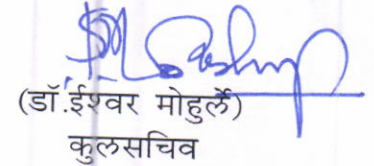 (डॉ.ईश्वर मोहुर्ले)
कुलसचिव